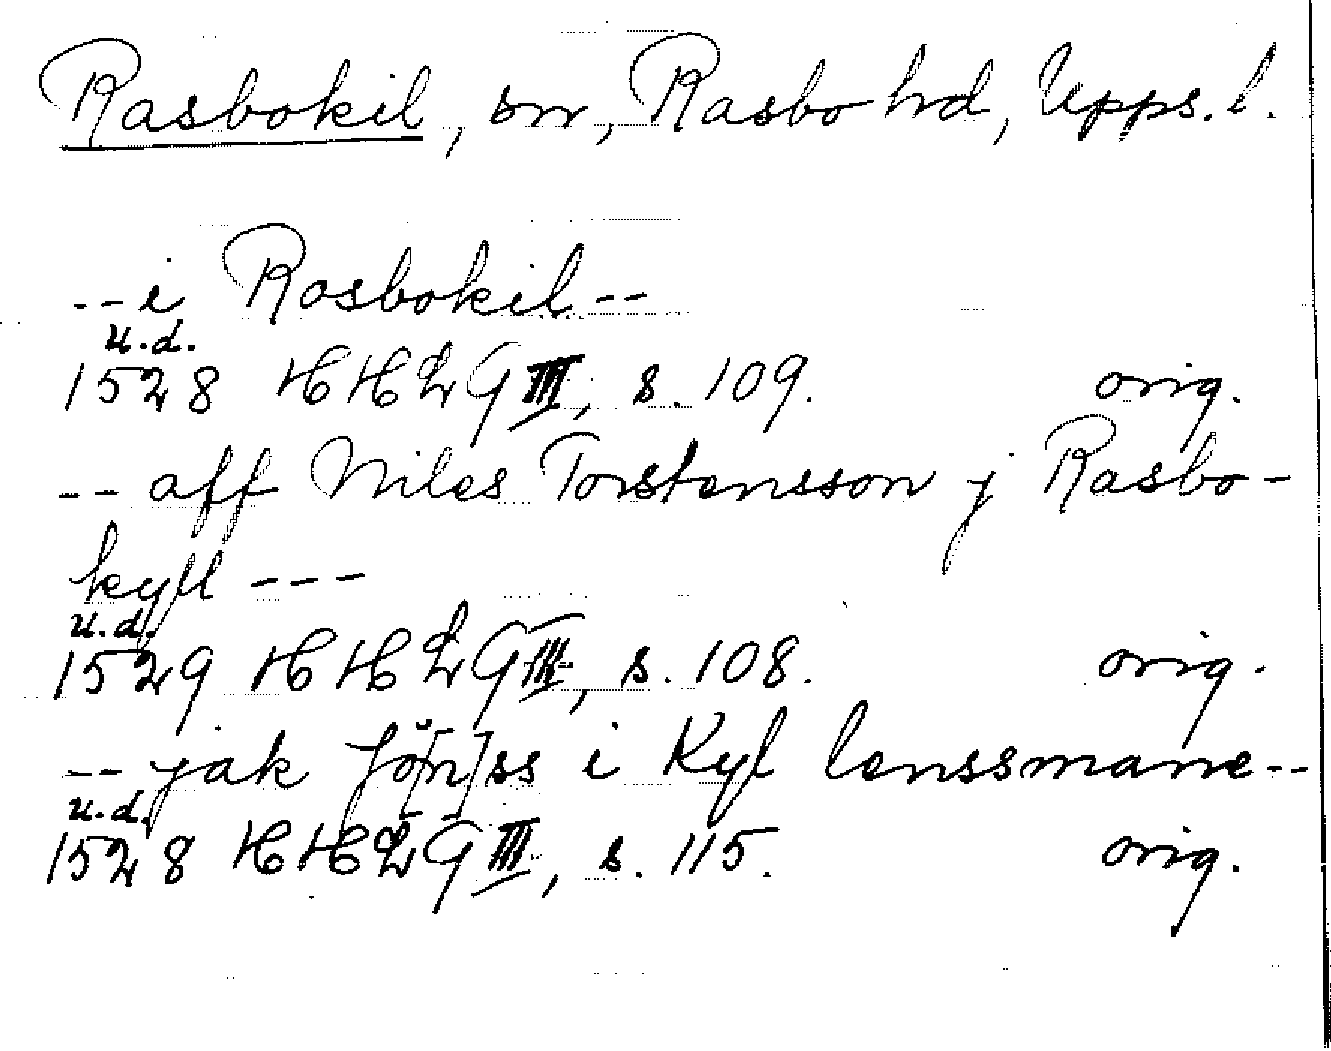 Rasbokil, sn, Rasbo hd, Upps. l.
-- i Rasbokil --
u.d.
1528 HHLG III, s. 109. orig.
-- aff Niles Torstensson j Rasbo-
kyll ---
u.d.
1529 HHLG III, s. 108. orig.
-- jak Jö[n]ss i Kyl lenssmane --
u.d.
1528 HHLG III, s. 115. orig.